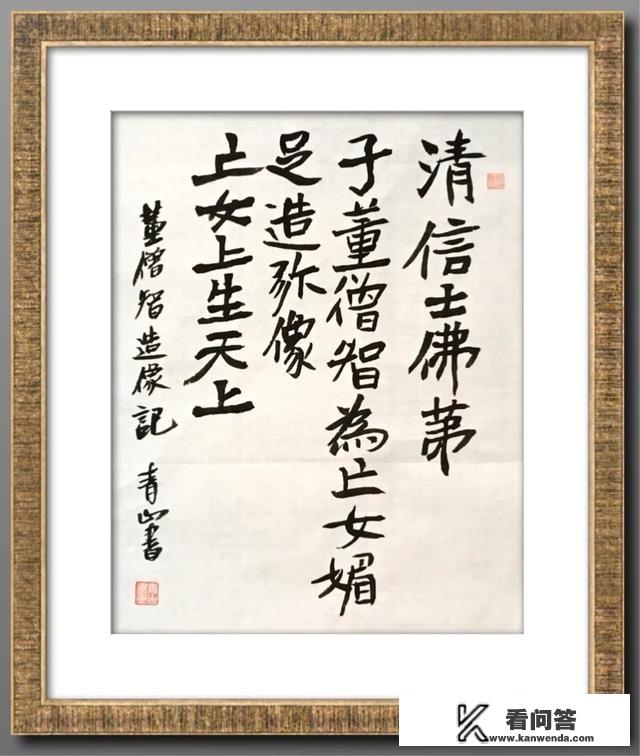 清信士佛苐
子董僧智為亡女媚
足造弥像
亡女上生天上
董僧智造像記 青山書
看问答
www.kanwenda.com